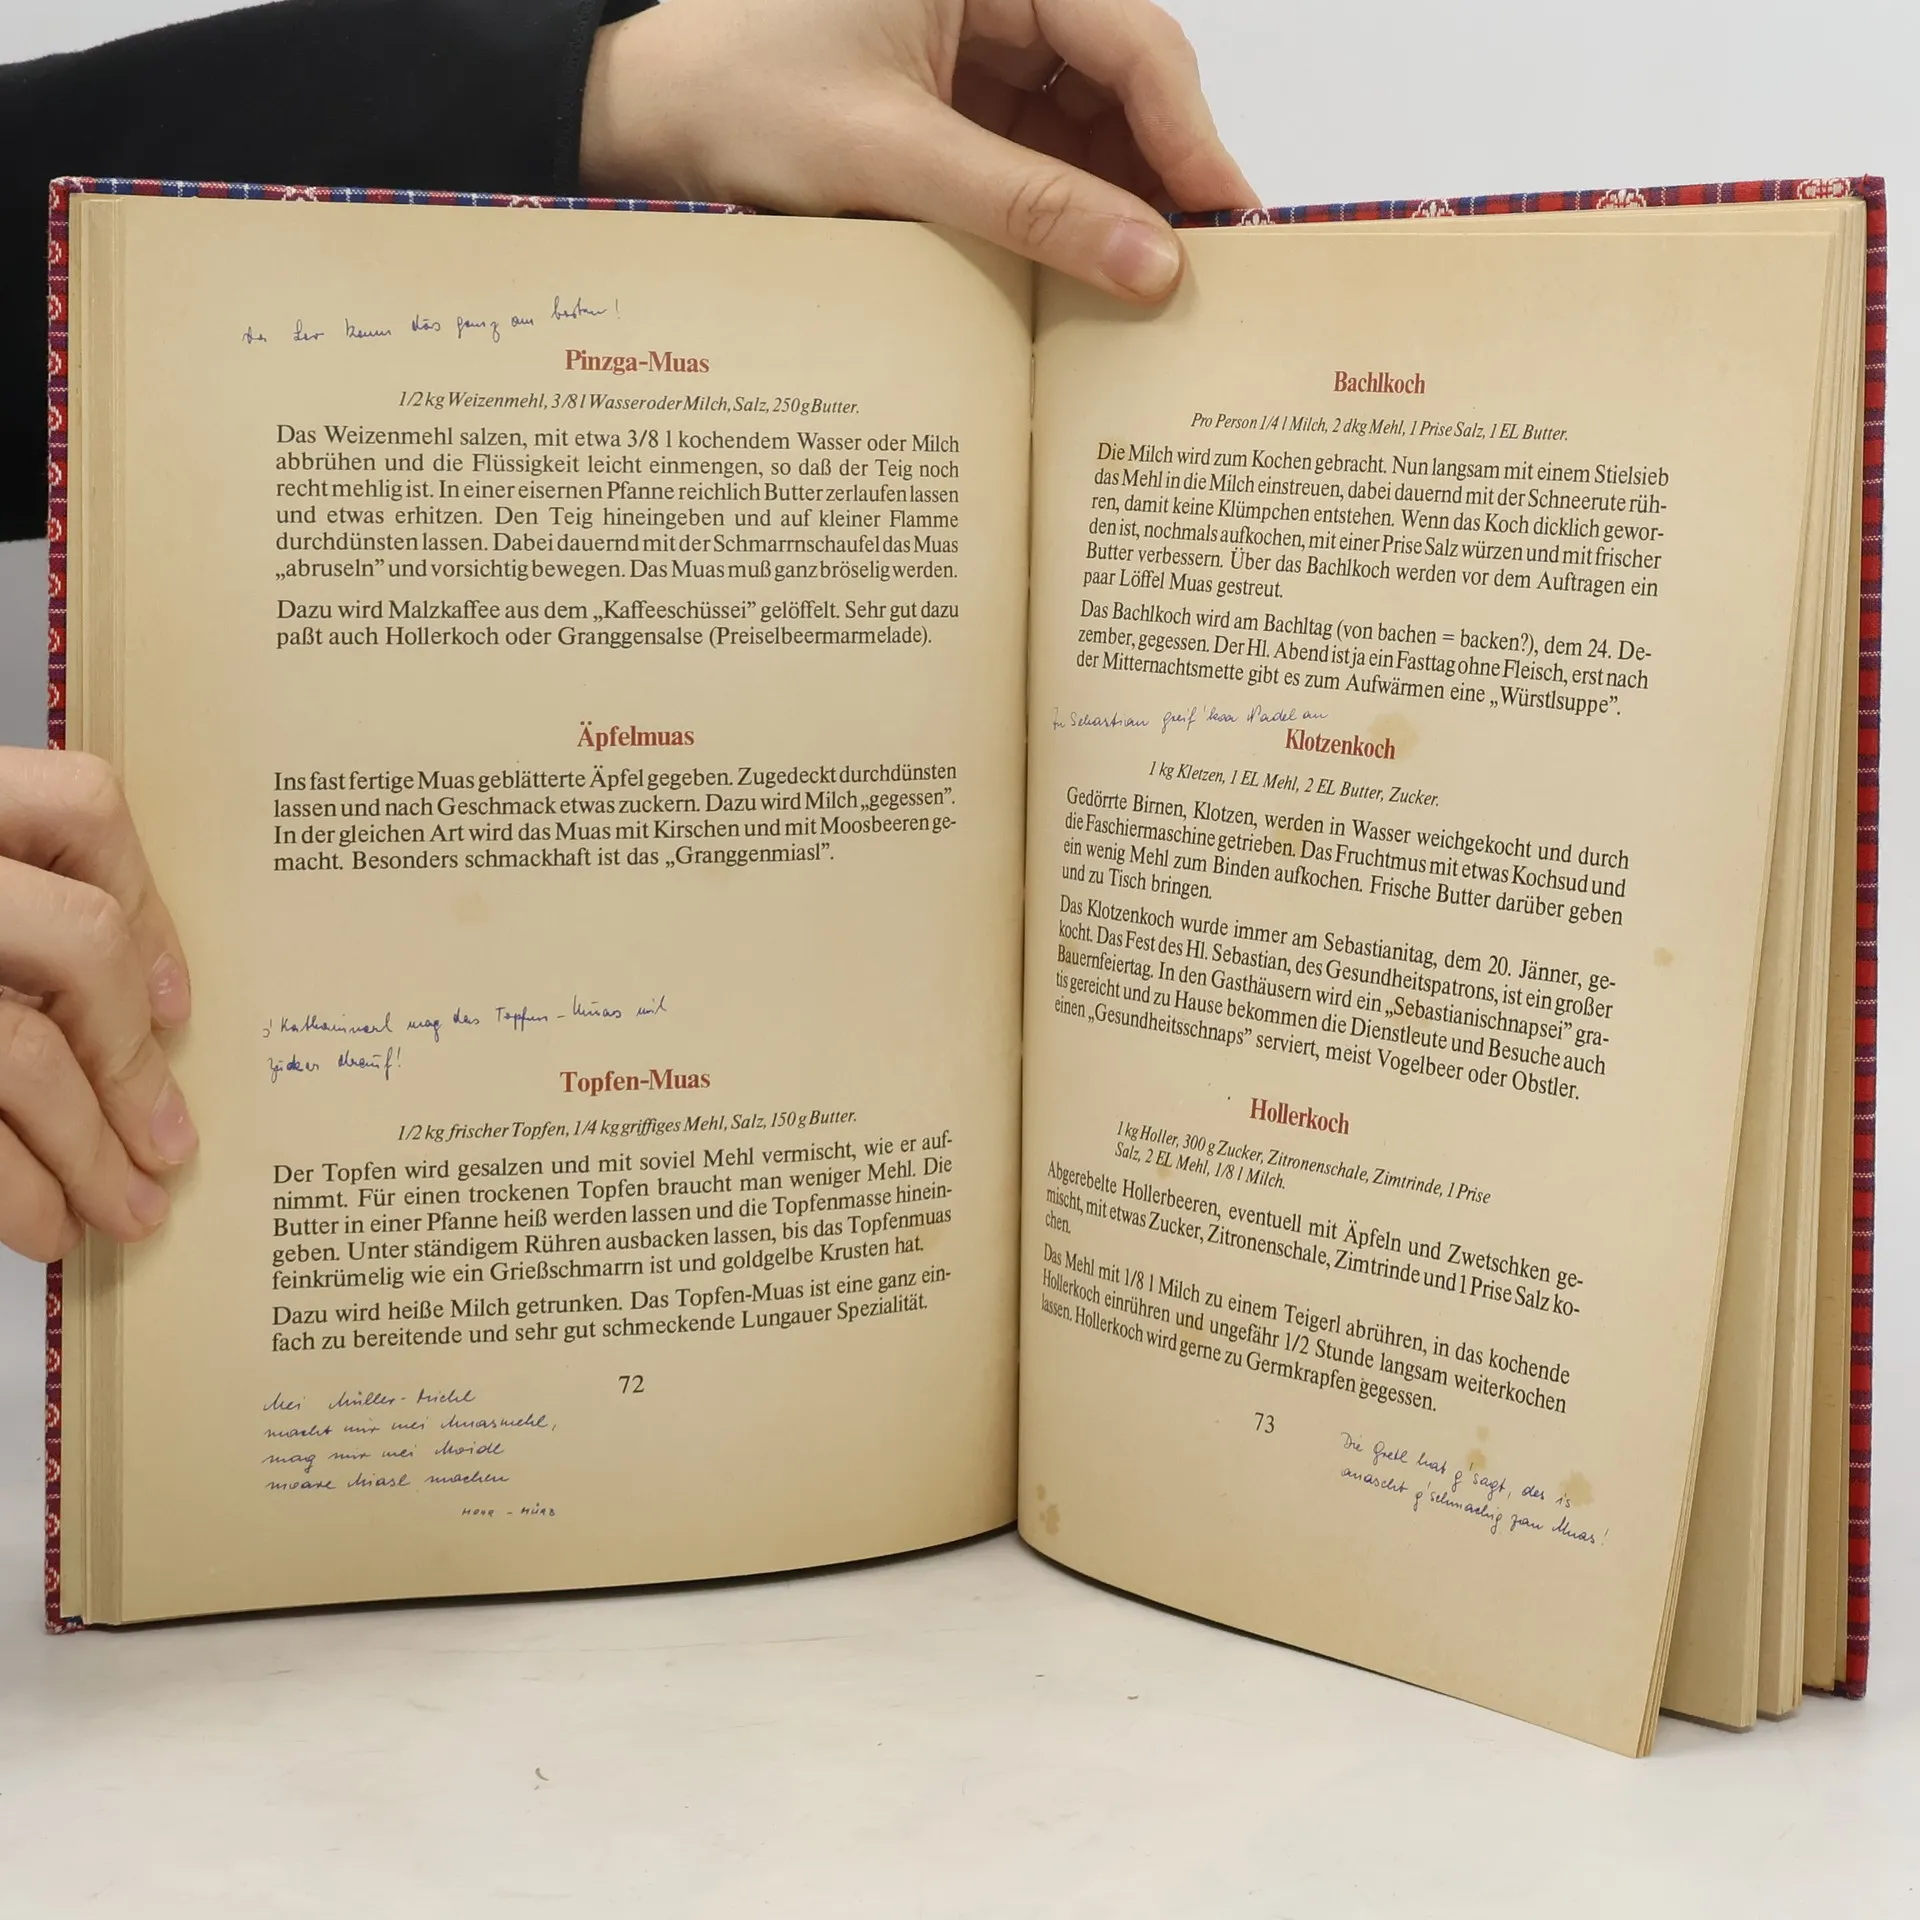 kann dås ganz am besten!
Pinzga-Muas
1/2 kg Weizenmehl, 3/8 l Wasser oder Milch, Salz, 250 g Butter.
Das Weizenmehl salzen, mit etwa 3/8 l kochendem Wasser oder Milch
abbrühen und die Flüssigkeit leicht einmengen, so daß der Teig noch
recht mehlig ist. In einer eisernen Pfanne reichlich Butter zerlaufen lassen
und etwas erhitzen. Den Teig hineingeben und auf kleiner Flamme
durchdünsten lassen. Dabei dauernd mit der Schmarrnschaufel das Muas
„abruseln” und vorsichtig bewegen. Das Muas muß ganz bröselig werden.
Dazu wird Malzkaffee aus dem „Kaffeeschüssei” gelöffelt. Sehr gut dazu
paßt auch Hollerkoch oder Granggensalse (Preiselbeermarmelade).
Äpfelmuas
Ins fast fertige Muas geblätterte Äpfel gegeben. Zugedeckt durchdünsten
lassen und nach Geschmack etwas zuckern. Dazu wird Milch „gegessen”.
In der gleichen Art wird das Muas mit Kirschen und mit Moosbeeren ge-
macht. Besonders schmackhaft ist das „Granggenmiasl”.
mag des Topfen-Muas mit
Zucker drauf!
Topfen-Muas
1/2 kg frischer Topfen, 1/4 kg griffiges Mehl, Salz, 150 g Butter.
Der Topfen wird gesalzen und mit soviel Mehl vermischt, wie er auf-
nimmt. Für einen trockenen Topfen braucht man weniger Mehl. Die
Butter in einer Pfanne heiß werden lassen und die Topfenmasse hinein-
geben. Unter ständigem Rühren ausbacken lassen, bis das Topfenmuas
feinkrümelig wie ein Grießschmarrn ist und goldgelbe Krusten hat.
Dazu wird heiße Milch getrunken. Das Topfen-Muas ist eine ganz ein-
fach zu bereitende und sehr gut schmeckende Lungauer Spezialität.
72
Mei Müller-Michl
macht mir mei Muasmehl,
mag mir mei Moidl
moare Miasl machen
MOAR - MÜRB
Bachlkoch
Pro Person 1/4 l Milch, 2 dkg Mehl, 1 Prise Salz, 1 EL Butter.
Die Milch wird zum Kochen gebracht. Nun langsam mit einem Stielsieb
das Mehl in die Milch einstreuen, dabei dauernd mit der Schneerute rüh-
ren, damit keine Klümpchen entstehen. Wenn das Koch dicklich gewor-
den ist, nochmals aufkochen, mit einer Prise Salz würzen und mit frischer
Butter verbessern. Über das Bachlkoch werden vor dem Auftragen ein
paar Löffel Muas gestreut.
Das Bachlkoch wird am Bachltag (von bachen = backen?), dem 24. De-
zember, gegessen. Der Hl. Abend ist ja ein Fasttag ohne Fleisch, erst nach
der Mitternachtsmette gibt es zum Aufwärmen eine „Würstlsuppe”.
Zu Sebastian greif' koa Nadel an
Klotzenkoch
1 kg Kletzen, 1 EL Mehl, 2 EL Butter, Zucker.
Gedörrte Birnen, Klotzen, werden in Wasser weichgekocht und durch
die Faschiermaschine getrieben. Das Fruchtmus mit etwas Kochsud und
ein wenig Mehl zum Binden aufkochen. Frische Butter darüber geben
und zu Tisch bringen.
Das Klotzenkoch wurde immer am Sebastianitag, dem 20. Jänner, ge-
kocht. Das Fest des Hl. Sebastian, des Gesundheitspatrons, ist ein großer
Bauernfeiertag. In den Gasthäusern wird ein „Sebastianischnapsei” gra-
tis gereicht und zu Hause bekommen die Dienstleute und Besuche auch
einen „Gesundheitsschnaps” serviert, meist Vogelbeer oder Obstler.
Hollerkoch
1 kg Holler, 300 g Zucker, Zitronenschale, Zimtrinde, 1 Prise
Salz, 2 EL Mehl, 1/8 l Milch.
Abgerebelte Hollerbeeren, eventuell mit Äpfeln und Zwetschken ge-
mischt, mit etwas Zucker, Zitronenschale, Zimtrinde und 1 Prise Salz ko-
chen.
Das Mehl mit 1/8 l Milch zu einem Teigerl abrühren, in das kochende
Hollerkoch einrühren und ungefähr 1/2 Stunde langsam weiterkochen
lassen. Hollerkoch wird gerne zu Germkrapfen gegessen.
73
Die Gretl hat g'sagt, des is
g'schmackig zan Muas!